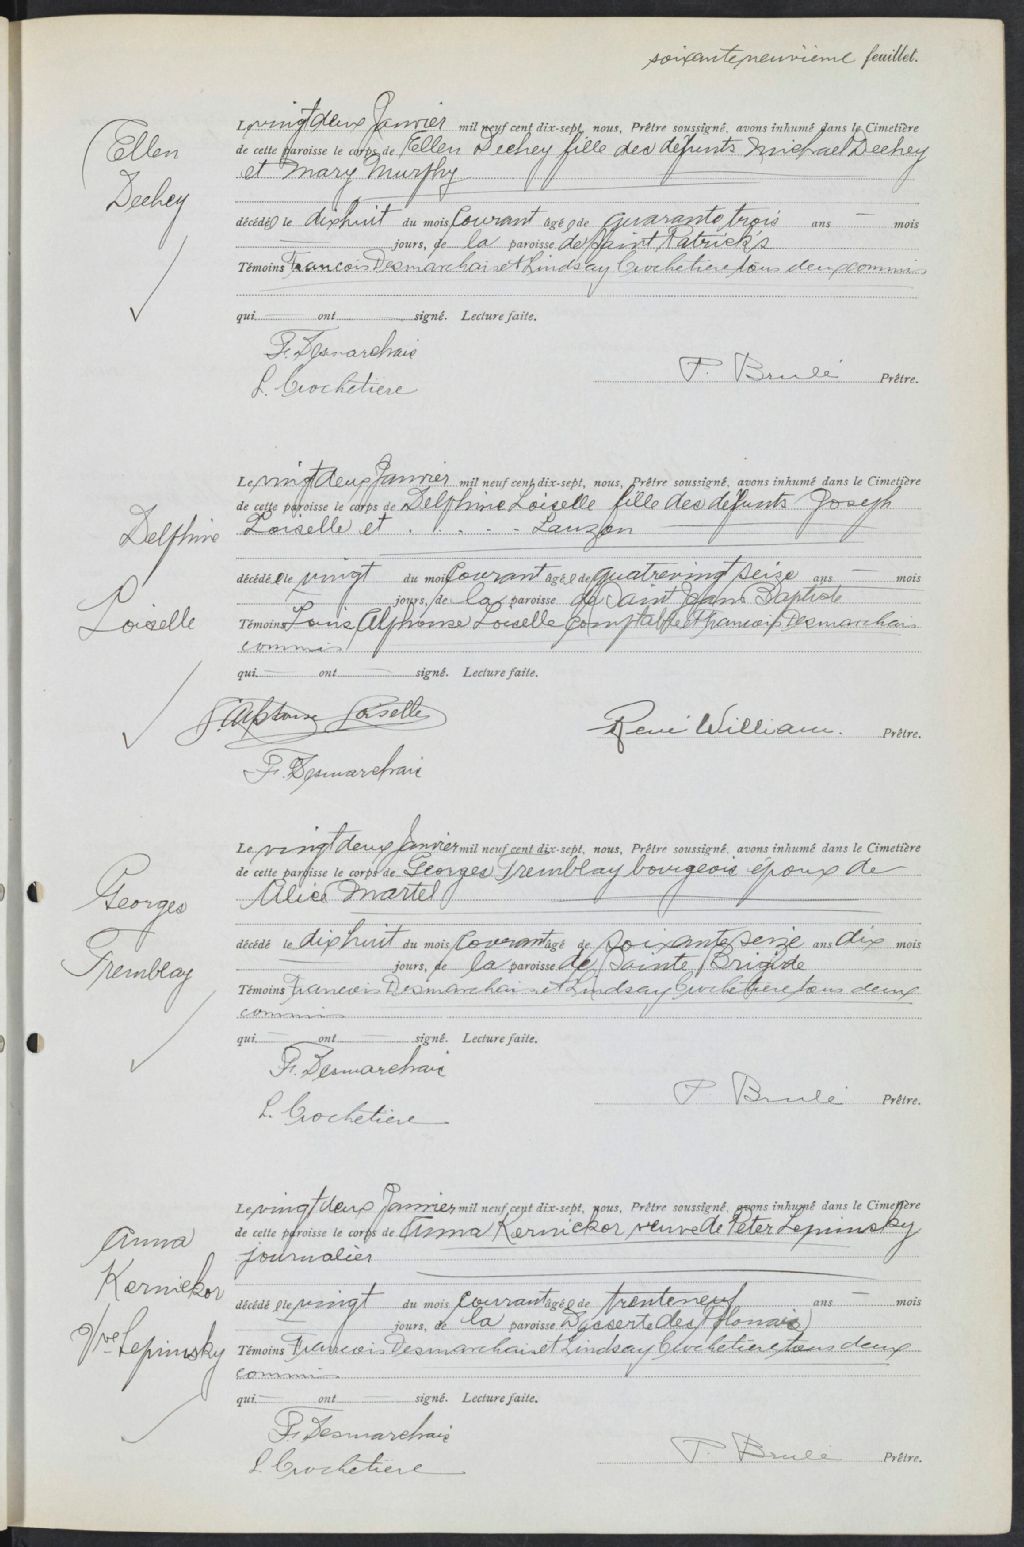 soixante neuvième feuillet.
Ellen
Dechey
Le vingt deux Janvier mil neuf cent dix-sept, nous, Prêtre soussigné, avons inhumé dans le Cimetière
de cette paroisse le corps de Ellen Dechey fille des défunts Michael Dechey
et Mary Murphy
décédée le dix huit du mois Courant âgée de quarante trois ans — mois
— jours, de la paroisse de Saint Patrick's
Témoins Francois Desmarchais et Lindsay Crochetiere tous deux commis
qui — ont — signé. Lecture faite.
F. Desmarchais
L. Crochetiere
P. Brulé Prêtre.
Delphine
Loiselle
Le vingt deux Janvier mil neuf cent dix-sept, nous, Prêtre soussigné, avons inhumé dans le Cimetière
de cette paroisse le corps de Delphine Loiselle fille des défunts Joseph
Loiselle et . . . . . Lauzon
décédée le vingt du mois Courant âgée de quatre vingt seize ans — mois
jours, de la paroisse de Saint Jean Baptiste
Témoins Louis Alphonse Loiselle Comptable et Francois Desmarchais
commis
qui — ont — signé. Lecture faite.
L. Alphonse Loiselle
F. Desmarchais
René William. Prêtre.
Georges
Tremblay
Le vingt deux Janvier mil neuf cent dix-sept, nous, Prêtre soussigné, avons inhumé dans le Cimetière
de cette paroisse le corps de Georges Tremblay bourgeois époux de
Alice Martel
décédé le dix huit du mois Courant âgé de soixante seize ans dix mois
jours, de la paroisse de Sainte Brigide
Témoins Francois Desmarchais et Lindsay Crochetiere tous deux
commis
qui — ont — signé. Lecture faite.
F. Desmarchais
L. Crochetiere
P. Brulé Prêtre.
Anna
Kernickor
Vve Lepinsky
Le vingt deux Janvier mil neuf cent dix-sept, nous, Prêtre soussigné, avons inhumé dans le Cimetière
de cette paroisse le corps de Anna Kernickor veuve de Peter Lepinsky
journalier
décédée le vingt du mois courant âgée de trente neuf ans — mois
jours, de la paroisse Desserte des
Témoins Francois Desmarchais et Lindsay Crochetiere tous deux
commis
qui — ont — signé. Lecture faite.
F. Desmarchais
L. Crochetiere
P. Brulé Prêtre.